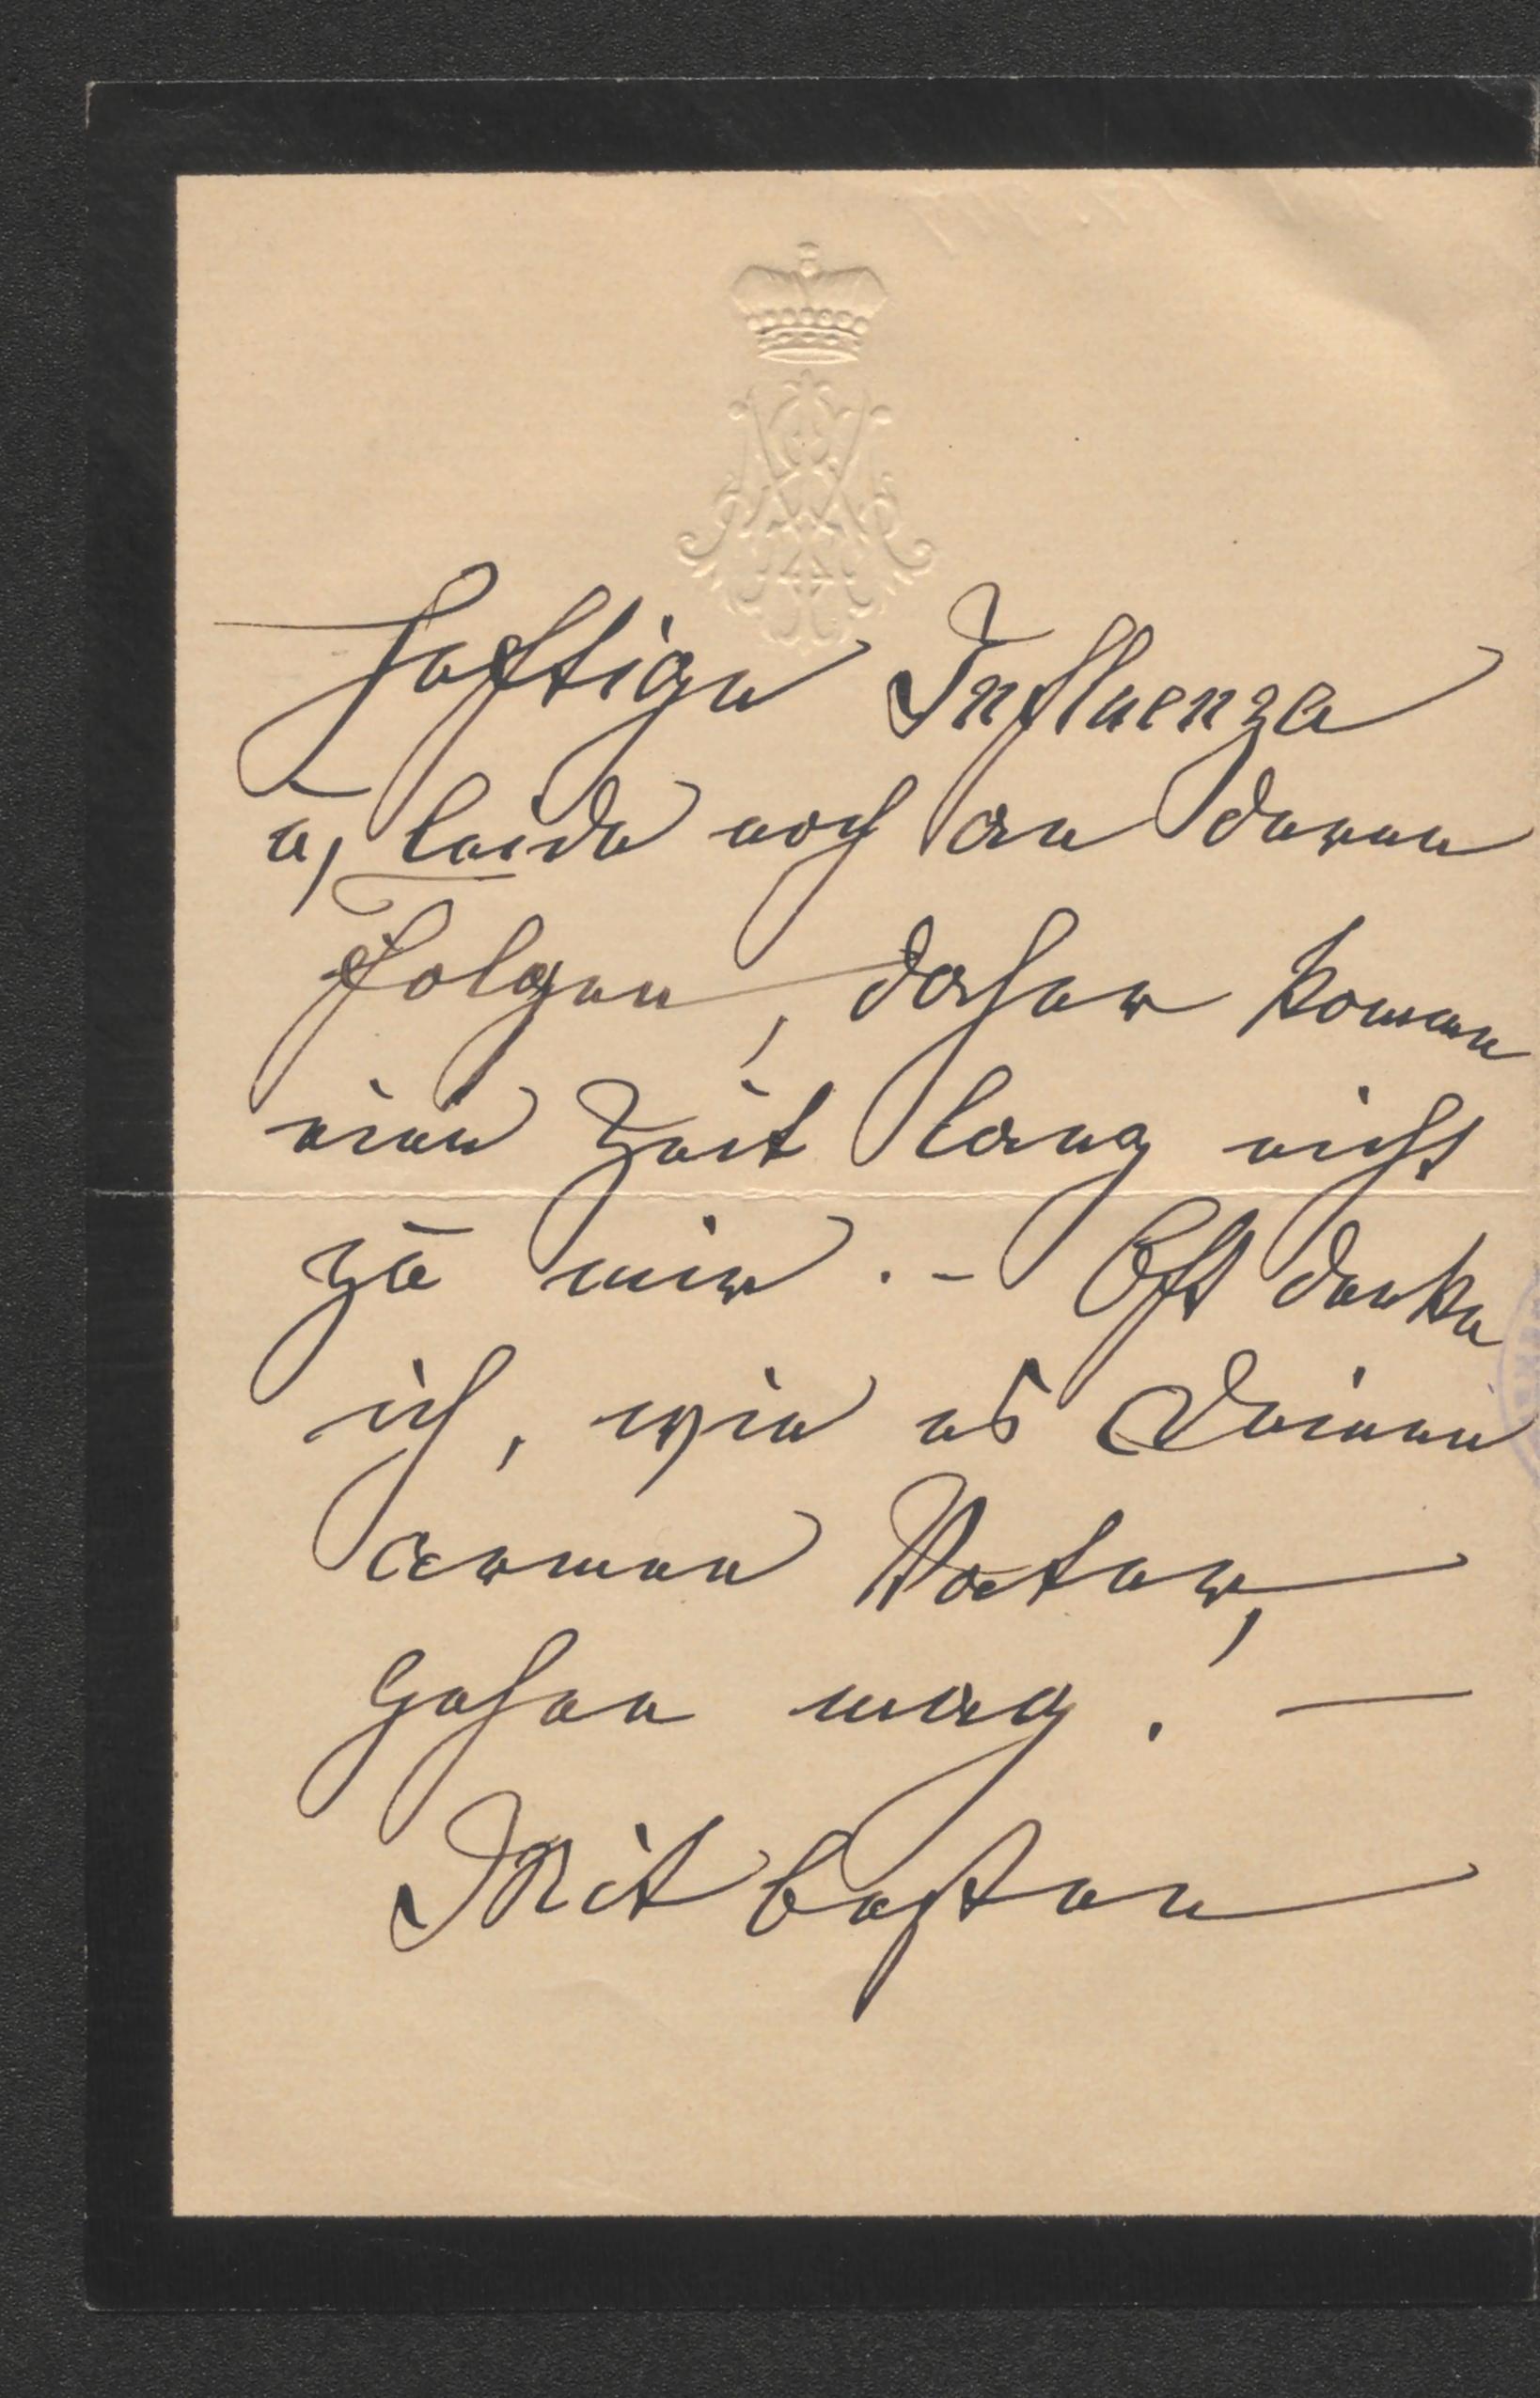 heftige Influenza
u, leide noch an deren
Folgen, daher komme
eine Zeit lang nicht
zu mir. - Oft denke
ich, wie es Deinem
armen Vater,
gehen mag. —
Mit besten